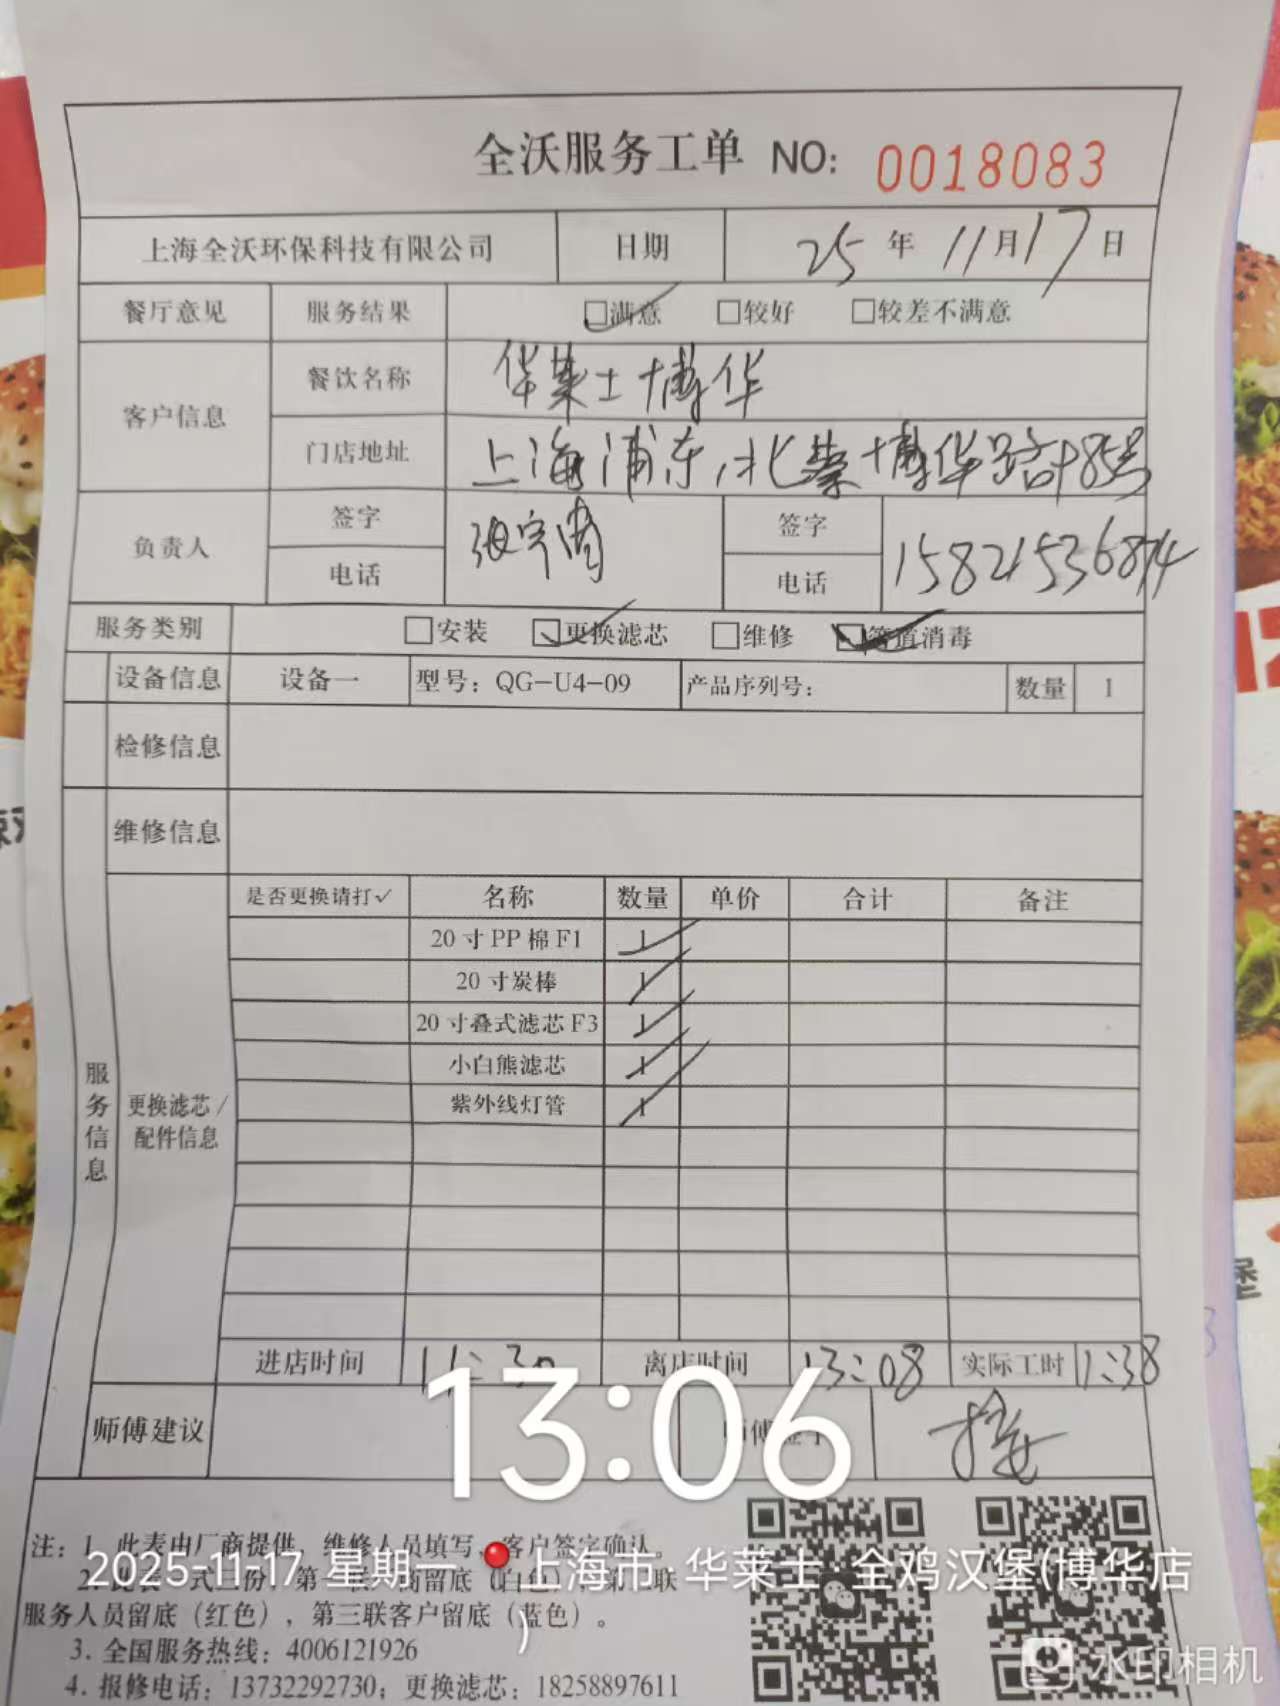 全沃服务工单 NO: 0018083
上海全沃环保科技有限公司 日期 25年11月17日
餐厅意见 服务结果 ☑满意 □较好 □较差不满意
客户信息 餐饮名称 华莱士博华
门店地址 上海浦东北蔡博华路185号
负责人 签字 张宇 签字
电话 电话 15821536874
服务类别 □安装 ☑更换滤芯 □维修 ☑管道消毒
设备信息 设备一 型号：QG-U4-09 产品序列号： 数量 1
检修信息
维修信息
服务信息
更换滤芯/配件信息
是否更换请打✓ 名称 数量 单价 合计 备注
20寸PP棉F1 1
20寸炭棒 1
20寸叠式滤芯F3 1
小白熊滤芯 1
紫外线灯管 1
进店时间 11:30 离店时间 13:08 实际工时 1:38
师傅建议 师傅签字
13:06
注：1. 此表由厂商提供，维修人员填写，客户签字确认。
2025-11-17 星期一 上海市 华莱士 全鸡汉堡(博华店)
2. 此表一式三份，第一联厂商留底（白色），第二联
服务人员留底（红色），第三联客户留底（蓝色）。
3. 全国服务热线：4006121926
4. 报修电话：13732292730；更换滤芯：18258897611
水印相机
堡